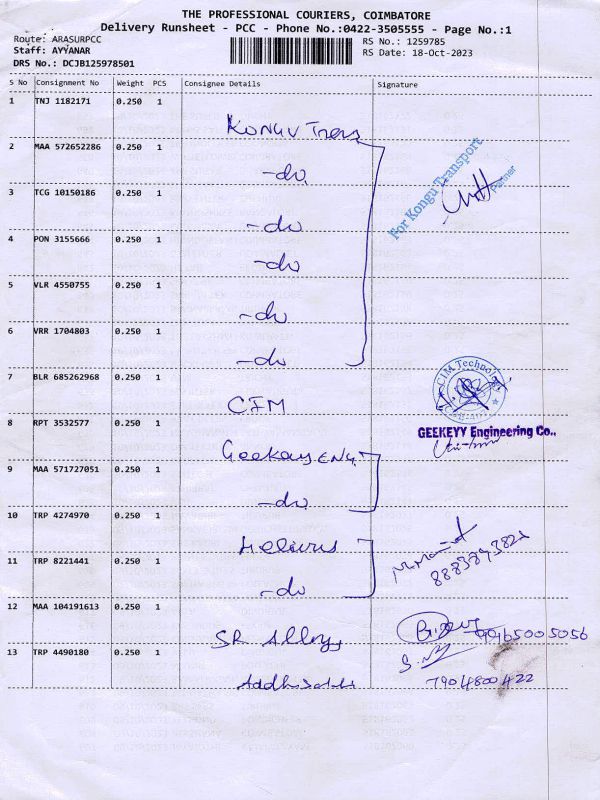 THE PROFESSIONAL COURIERS, COIMBATORE
Delivery Runsheet - PCC - Phone No.:0422-3505555 - Page No.:1
Route: ARASURPCC
Staff: AYYANAR
DRS No.: DCJB125978501
RS No.: 1259785
RS Date: 18-Oct-2023
S No Consignment No Weight PCS Consignee Details Signature
1 TNJ 1182171 0.250 1 KONGU Trans
2 MAA 572652286 0.250 1 -do
3 TCG 10150186 0.250 1 -do
4 PON 3155666 0.250 1 -do
5 VLR 4550755 0.250 1 -do
6 VRR 1704803 0.250 1 -do
For Kongu Transport
Partner
7 BLR 685262968 0.250 1 CIM
CIM Technology
8 RPT 3532577 0.250 1 Geekay ENG.
GEEKEYY Engineering Co.,
9 MAA 571727051 0.250 1 -do
10 TRP 4274970 0.250 1
11 TRP 8221441 0.250 1 -do
12 MAA 104191613 0.250 1 SR Alloy
9965005056
13 TRP 4490180 0.250 1
7904800422